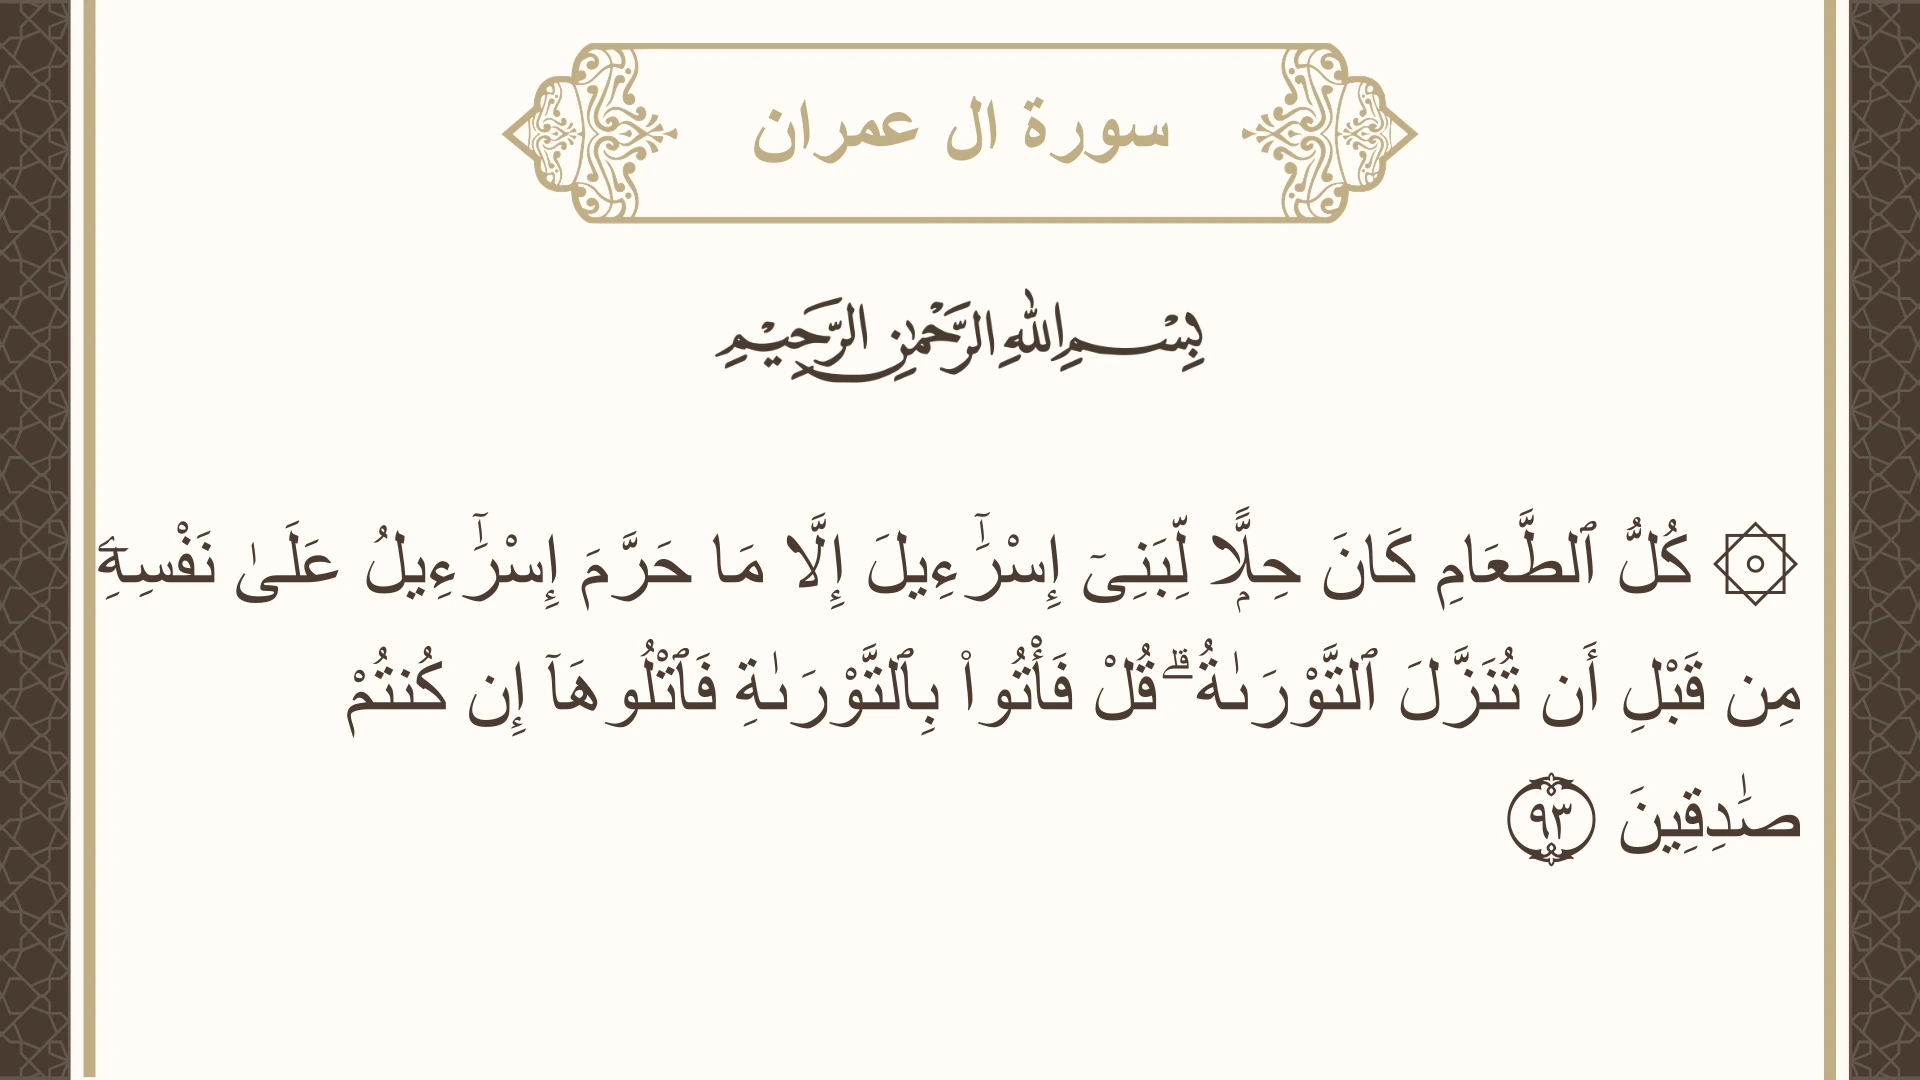 سورة ال عمران
بِسْمِ اللهِ الرَّحْمٰنِ الرَّحِيْمِ
۞ كُلُّ ٱلطَّعَامِ كَانَ حِلًّۭا لِّبَنِىٓ إِسْرَٰٓءِيلَ إِلَّا مَا حَرَّمَ إِسْرَٰٓءِيلُ عَلَىٰ نَفْسِهِۦ
مِن قَبْلِ أَن تُنَزَّلَ ٱلتَّوْرَىٰةُ ۗ قُلْ فَأْتُوا۟ بِٱلتَّوْرَىٰةِ فَٱتْلُوهَآ إِن كُنتُمْ
صَـٰدِقِينَ ٩٣